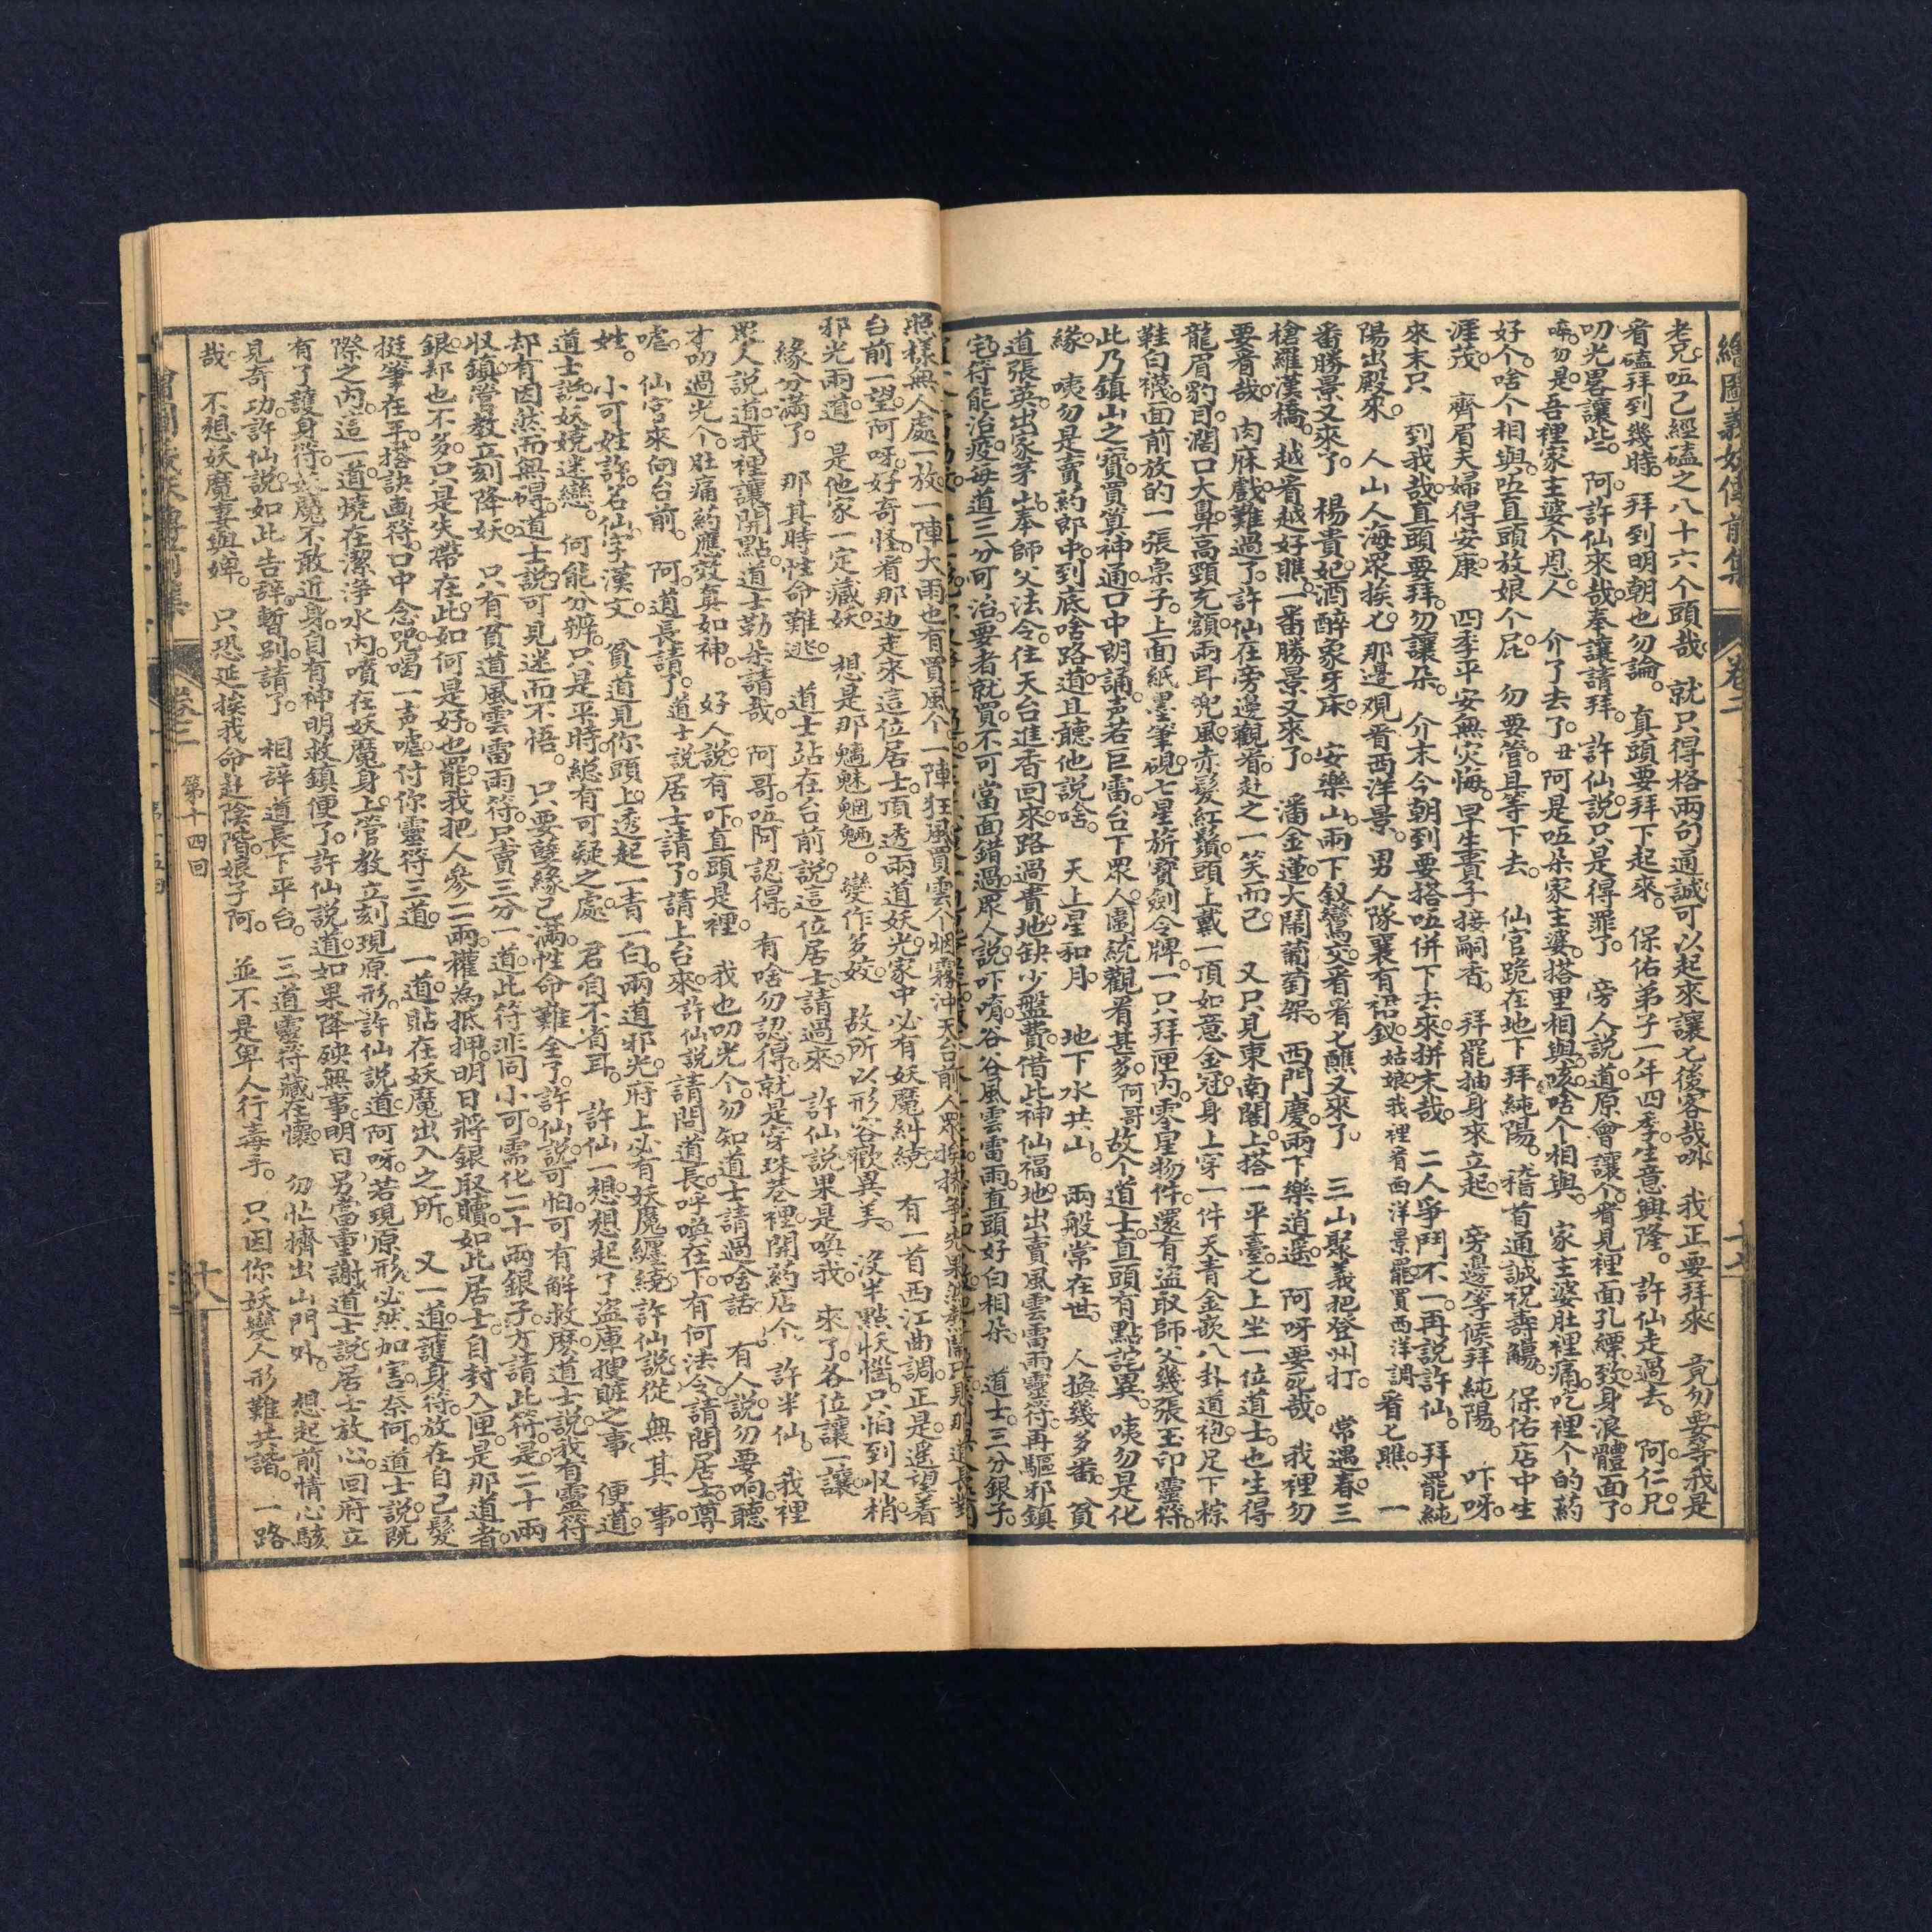 繪圖義妖傳前集 卷三 十七
老兄。咗已經磕之八十六个頭哉。 就只得格兩句通誠。可以起來讓七後客哉㖿。 我正要拜來。 竟勿要等我是
看磕拜到幾時。 拜到明朝也勿論。 真頭要拜下起來。 保佑弟子一年四季。生意興隆。 許仙走過去。 阿仁兄。
叨光畧讓些。 阿。許仙來哉。奉讓請拜。 許仙說。只是得罪了。 旁人說。道原會讓个。看見裡面孔縹致。身浪體面了。
勿是。吾裡家主婆个恩人。 介了去了。丑阿是咗朵家主婆。搭里相與。咳。啥个相與。 家主婆肚裡痛。吃裡个的药
好个。啥个相與。咗直頭放娘个屁。 勿要管。且等下去。 仙官跪在地下拜純陽。稽首通誠祝壽觴。 保佑店中生
涯茂。 齊眉夫婦得安康。 四季平安無灾悔。早生貴子接嗣香。 拜罷抽身來立起。 旁邊等候拜純陽。 吓呀。
來末只 到我哉。直頭要拜。勿讓朵。 介末今朝到要搭咗併下去。來拼末哉。 二人爭鬥不一。再說許仙。 拜罷純
陽出殿來。 人山人海眾挨七。那邊觀看西洋景。 男人隊裏有裙釵。姑娘。我裡看西洋景罷。買西洋調 看七瞧。 一
番勝景又來了。 楊貴妃酒醉象牙床。 安樂山。兩下叙鸞交。看看七瞧又來了。 三山聚義把登州打。 常遇春。三
槍羅漢橋。越看越好瞧。一番勝景又來了。 潘金蓮。大鬧葡萄架。 西門慶。兩下樂逍遥。 阿呀要死哉。 我裡勿
要看哉。 肉麻戲。難過了。許仙在旁邊觀看。赴之一笑而已。 又只見東南閣上。搭一平臺。七上坐一位道士。也生得
龍眉豹目。濶口大鼻。高頸充額。兩耳兜風。赤髮紅鬚。頭上戴一頂如意金冠。身上穿一件天青金嵌八卦道袍。足下棕
鞋白襪。面前放的一張桌子。上面紙墨筆硯。七星旂寶劍令牌。一只拜匣內。零星物件。還有盜取師父幾張玉印靈符。
此乃鎮山之寶。買算神通。口中朗誦。声若巨雷。台下眾人。圍繞觀看甚多。阿哥。故个道士。直頭有點詫異。 咦勿是化
緣。 咦勿是賣药郎中。到底啥路道。且聽他說啥。 天上星和月。 地下水共山。 兩般常在世。 人換幾多番。 貧
道張英。出家茅山。奉師父法令。往天台進香回來。路過貴地。缺少盤費。借此神仙福地。出賣風雲雷雨靈符。再驅邪鎮
宅。符能治疫。每道三分可治。要者就買。不可當面錯過。眾人說。吓唷。谷谷風雲雷雨。直頭好白相朵。 道士。三分銀子。
照樣無人處一放。一陣大雨也有買風个一陣狂風。買雲个烟霧冲天。台前人眾挨挨
台前一望。阿呀。好奇怪。看那边走來這位居士。頂透兩道妖光。家中必有妖魔糾繞。 有一首西江曲調。正是。遥望着
邪光兩道。 是他家一定藏妖。 想是那魑魅魍魎。 變作多姣。 故所以形容歡異美。 沒半點妖惱。只怕到収梢。
緣分滿了。 那其時性命難逃。 道士站在台前。說這位居士。請過來。 許仙說。果是喚我。 來了。各位讓一讓。
眾人說。道。我裡讓開點。道士勒朵請哉。 阿哥。咗阿認得。 有啥勿認得。就是穿珠巷裡。開药店个。 許半仙。 我裡
才叨過光个。肚痛药應效真如神。 好人說。有吓。直頭是裡。 我也叨光个。勿知道士請過啥話。 有人說。勿要响。聽
嘘。 仙官來向台前。 阿。道長請了。道士說。居士請了。請上台來。許仙說。請問道長。呼喚在下。有何法令。請問居士尊
姓。 小可姓許。名仙。字漢文。 貧道見你頭上。透起一青一白。兩道邪光。府上必有妖魔纏繞。許仙說。從 無 其 事。
道士說。妖嬈迷戀。 何能分辨。只是平時。總有可疑之處。 君自不省耳。 許仙一想。想起了盜庫搜賍之事。 便道。
却有因。然而無碍。道士說。可見迷而不悟。 只要孽緣已滿。性命難全了。許仙說。可怕。可有解救麼。道士說。我有靈符
収鎮。管教立刻降妖。 只有貧道風雲雷雨符。只賣三分一道。此符非同小可。需化二十兩銀子。方請此符。是二十兩
銀。却也不多。只是失帶在此。如何是好。也罷。我把人參二兩。權為抵押。明日將銀取贖。如此居士。自封入匣。是那道者。
挺筆在手。搭訣画符。口中念咒。喝一声嘘。付你靈符三道。 一道貼在妖魔出入之所。 又一道。護身符。放在自己髮
際之內。這一道。燒在潔凈水內。噴在妖魔身上。管教立刻現原形。許仙說。道。阿呀。若現原形。必然加害。奈何。道士說。既
有了護身符。妖魔不敢近身。自有神明救鎮便了。許仙說。道。如果降殃無事。明日另當重謝。道士說。居士放心。回府立
見奇功。許仙說。如此告辭。暫別。請了。 相詳道長下平台。 三道靈符藏在懷。 勿忙擠出山門外。 想起前情心駭
哉。 不想妖魔妻與婢。 只恐延挨我命赴陰階。娘子阿。 並不是卑人行毒手。 只因你妖變人形難共諧。 一路
卷三 第十四回 十八